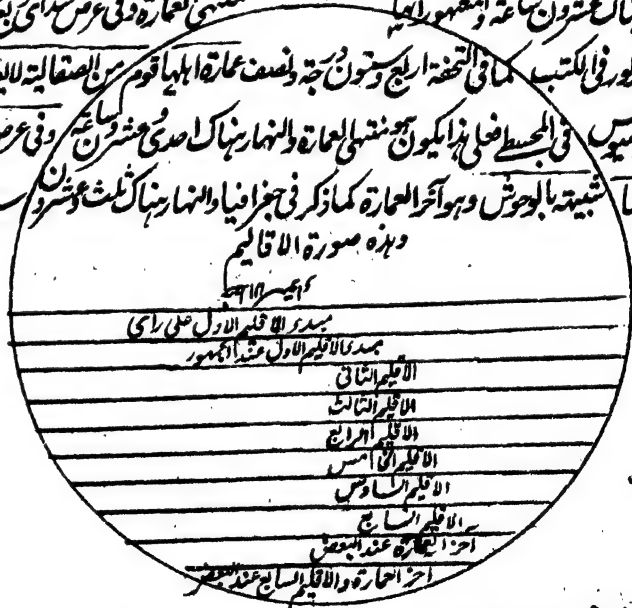 هناك عشرون ساعة والمشهور انها منتهى العمارة وفى عرض
فى الكتب كما فى التحفة اربع وستون درجة ونصف عمارة اهلها قوم من الصقالبة
فى المجسط فعلى هذا يكون هو منتهى العمارة والنهار هناك احدى وعشرون ساعة وفى عرض
شبيهة بالوحوش وهو آخر العمارة كما ذكر فى جغرافيا والنهار هناك ثلث وعشرون
وهذه صورة الاقاليم
مبدء الاقليم الاول على راى
مبدء الاقليم الاول عند الجمهور
الاقليم الثانى
الاقليم الثالث
الاقليم الرابع
الاقليم الخامس
الاقليم السادس
الاقليم السابع
آخر العمارة عند البعض
آخر العمارة والاقليم السابع عند البعض